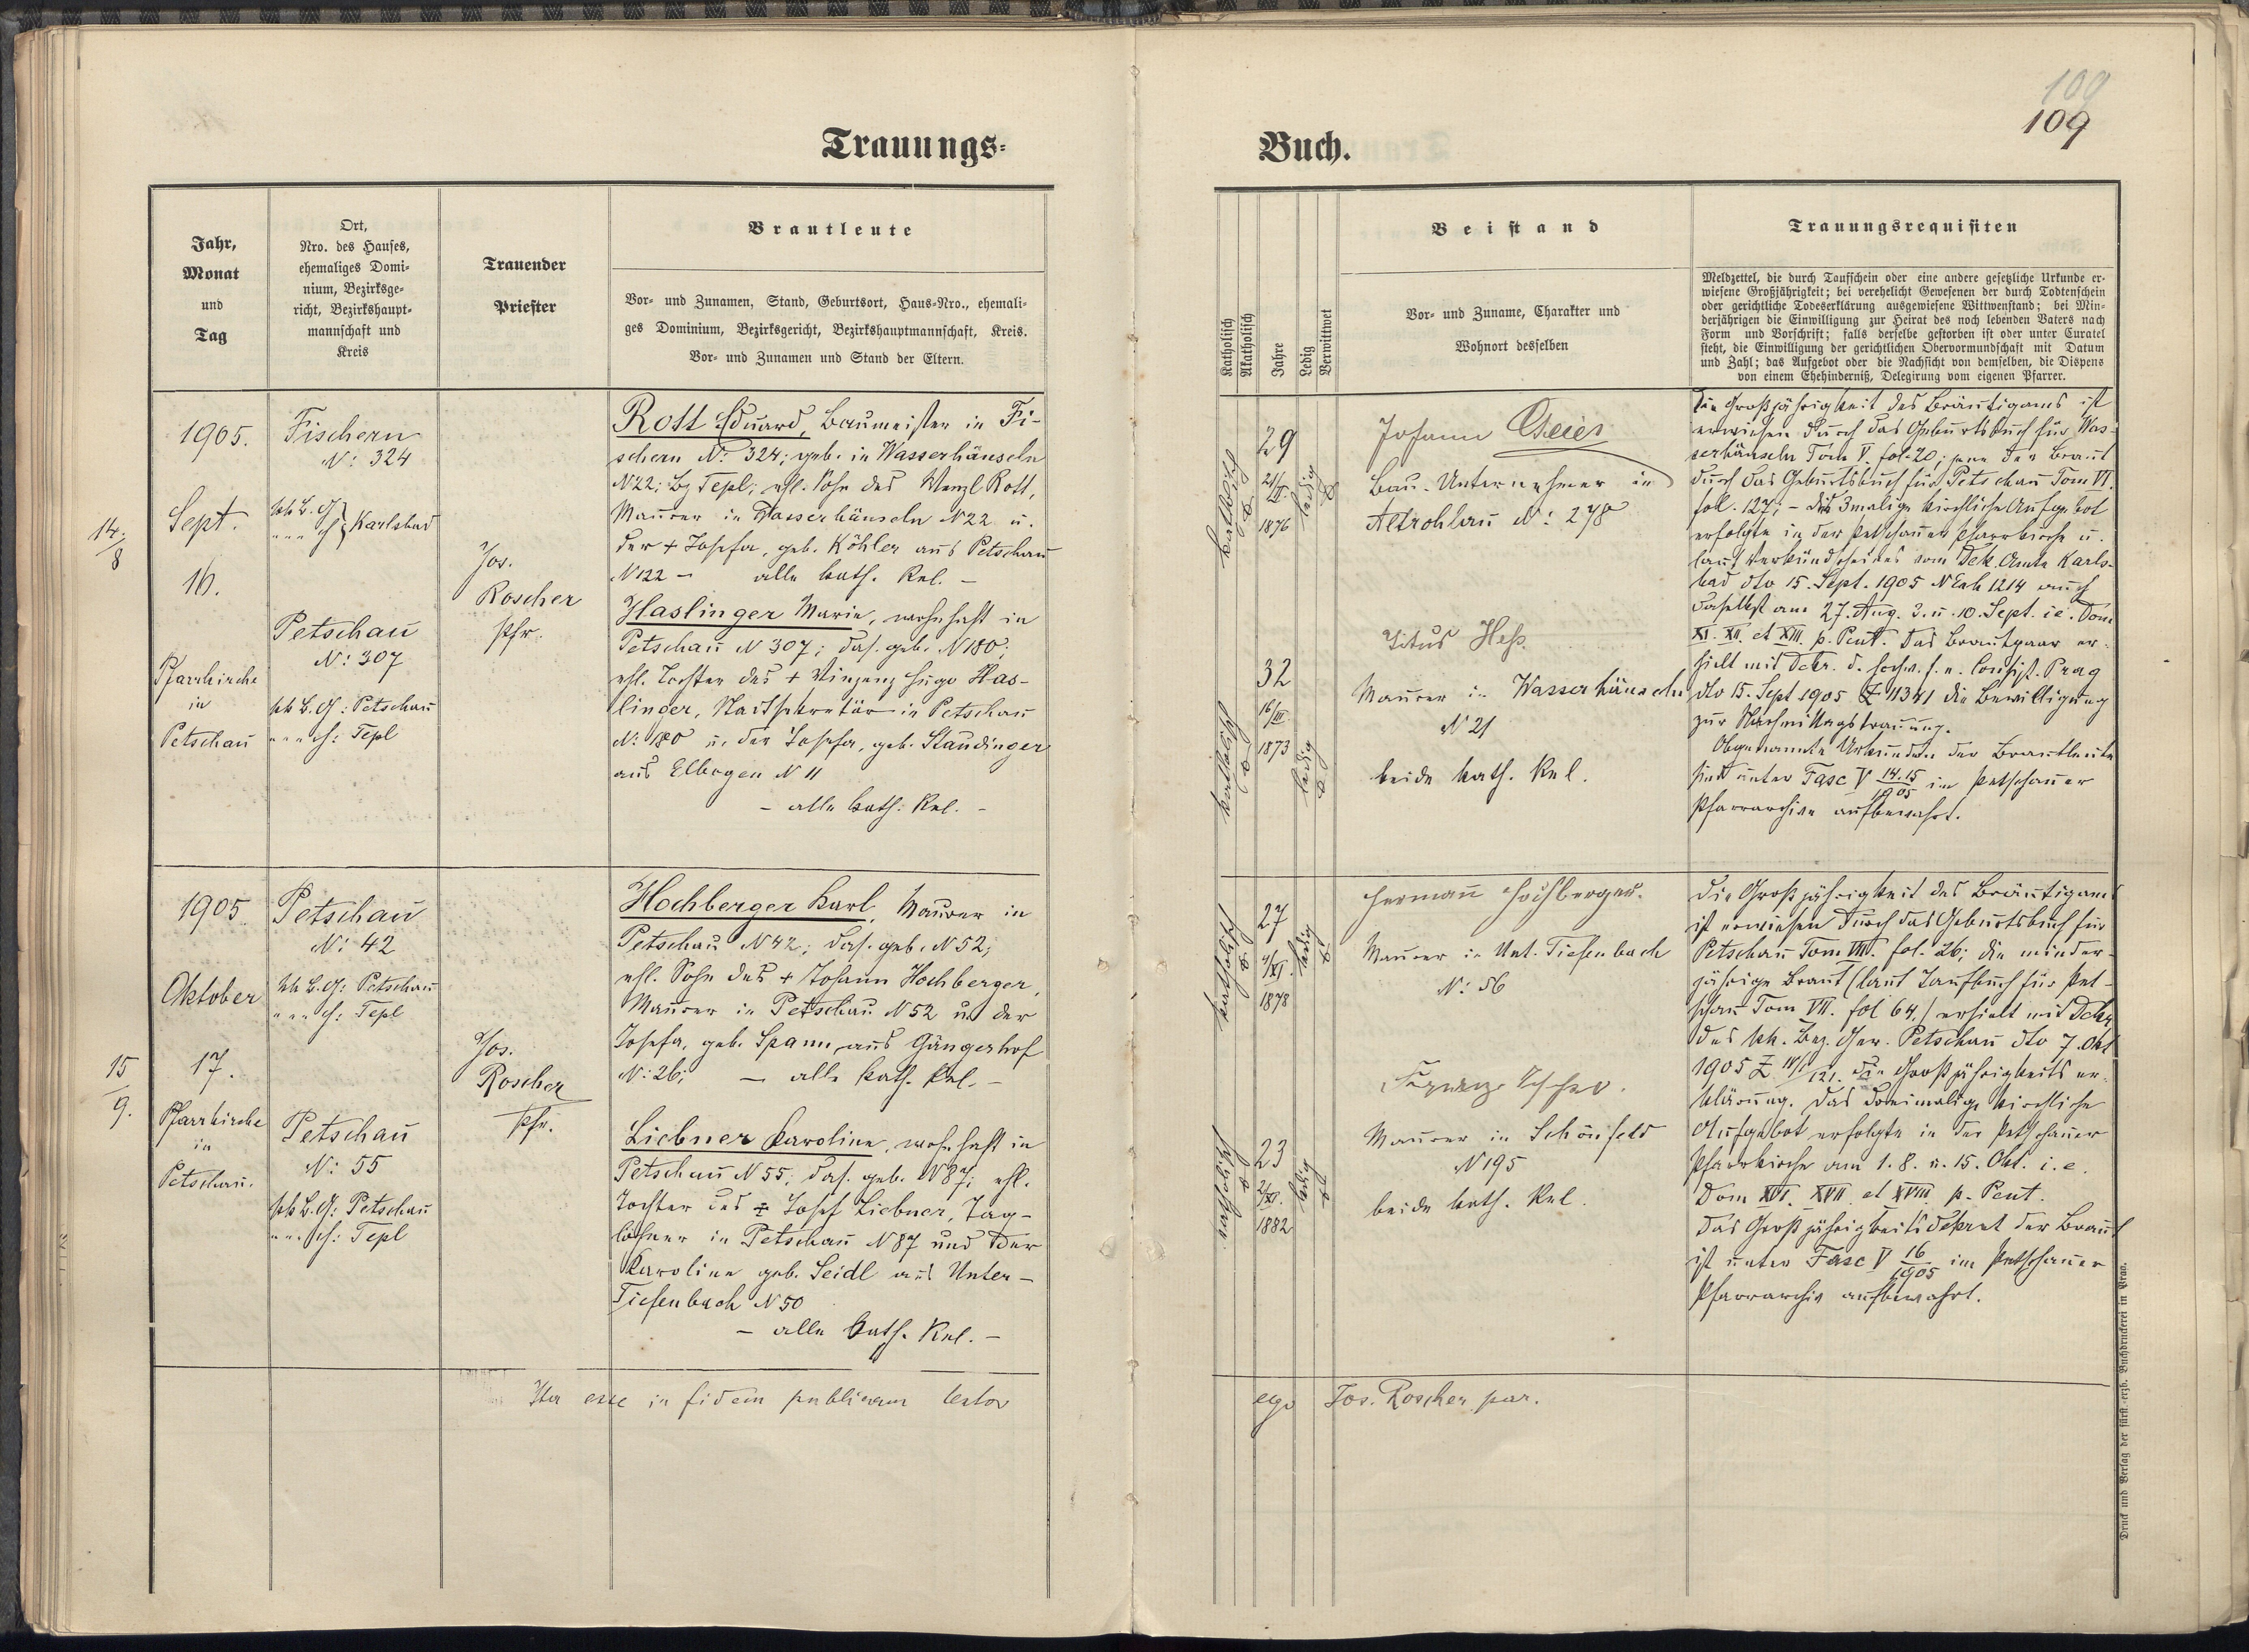 100
109
Trauungs-
Buch.
Jahr,
Monat
und
Tag
Ort,
Nro. des Hauses,
ehemaliges Domi-
nium, Bezirksge-
richt, Bezirkshaupt-
mannschaft und
Kreis
Trauender
Priester
Brautleute
Vor- und Zunamen, Stand, Geburtsort, Haus-Nro., ehemali-
ges Dominium, Bezirksgericht, Bezirkshauptmannschaft, Kreis.
Vor- und Zunamen und Stand der Eltern.
Katholisch
Akatholisch
Jahre
Ledig
Verwittwet
Beistand
Vor- und Zuname, Charakter und
Wohnort desselben
Trauungsrequisiten
Meldzettel, die durch Taufschein oder eine andere gesetzliche Urkunde er-
wiesene Großjährigkeit; bei verehelicht Gewesenen der durch Todtenschein
oder gerichtliche Todeserklärung ausgewiesene Wittwenstand; bei Min-
derjährigen die Einwilligung zur Heirat des noch lebenden Vaters nach
Form und Vorschrift; falls derselbe gestorben ist oder unter Curatel
steht, die Einwilligung der gerichtlichen Obervormundschaft mit Datum
und Zahl; das Aufgebot oder die Nachsicht von demselben, die Dispens
von einem Ehehinderniß, Delegirung vom eigenen Pfarrer.
14.
8
1905.
Sept.
16.
Pfarrkirche
in
Petschau
Fischern
N: 324
kk B. G.
" " " H. Karlsbad
Petschau
N: 307
kk B. G: Petschau
" " " H: Tepl
Jos.
Roscher
Pfr.
Rott Eduard, Baumeister in Fi-
schern N: 324; geb. in Wasserhäuseln
N 22; Bz Tepl; ehl. Sohn des Wenzl Rott,
Maurer in Wasserhäuseln N 22 u.
der + Josefa, geb. Köhler aus Petschau
N 122 - alle kath. Rel. -
Haslinger Marie, wohnhaft in
Petschau N 307; das. geb. N 180;
ehl. Tochter des + Vinzenz Hugo Has-
linger, Stadtsekretär in Petschau
N: 180 u. der Josefa, geb. Staudinger
aus Elbogen N 11
- alle kath. Rel. -
katholisch
29
1876
ledig
katholisch
32
16/III.
1873
ledig
Johann Geier
Bau-Unternehmer in
Altrohlau N: 278
Titus Heß
Maurer in Wasserhäuseln
N 21
beide kath. Rel.
Die Großjährigkeit des Bräutigams ist
erwiesen durch das Geburtsbuch für Was-
serhäuseln Tom V. fol. 20; jene der Braut
durch das Geburtsbuch für Petschau Tom VI.
fol. 127; - Das 3malige kirchliche Aufgebot
erfolgte in der Petschauer Pfarrkirche u.
laut Verkündscheines vom Dek. Amte Karls-
bad dto 15. Sept. 1905 N Exh 1214 auch
daselbst am 27. Aug. 3. u. 10. Sept. i.e. Dom
XI. XII. et XIII. p. Pent. Das Brautpaar er-
hielt mit Dekr. d. hochw. f. e. Consist. Prag
dto 15. Sept 1905 Z 11341 die Bewilligung
zur Nachmittagstrauung.
Obgenannte Urkunden der Brautleute
sind unter Fasc V 14.15/1905 im Petschauer
Pfarrarchive aufbewahrt.
15
9.
1905
Oktober
17.
Pfarrkirche
in
Petschau.
Petschau
N: 42
kk B. G: Petschau
" " " H: Tepl
Petschau
N: 55
kk B. G: Petschau
" " " H: Tepl
Jos.
Roscher
Pfr.
Hochberger Karl, Maurer in
Petschau N 42; das. geb. N 52;
ehl. Sohn des + Johann Hochberger,
Maurer in Petschau N 52 u. der
Josefa, geb. Spann aus Gängerhof
N: 26; - alle kath. Rel. -
Liebner Karoline, wohnhaft in
Petschau N 55; das. geb. N 87; ehl.
Tochter des + Josef Liebner, Tag-
löhner in Petschau N 87 und der
Karoline geb. Seidl aus Unter-
Tiefenbach N 50
- alle kath. Rel. -
katholisch
27
4/XI.
1878
ledig
katholisch
23
2/XI.
1882
ledig
Hermann Hochberger.
Maurer in Unt. Tiefenbach
N: 56
Maurer in Schönfeld
N 195
beide kath. Rel.
Die Großjährigkeit des Bräutigams
ist erwiesen durch das Geburtsbuch für
Petschau Tom VII. fol. 26; die minder-
jährige Braut (laut Taufbuch für Pet-
schau Tom VII. fol 64.) erhielt mit Dekr
des kk. Bez. Ger. Petschau dto 7. Okt
1905 Z die Großjährigkeits er-
klärung. Das dreimalige kirchliche
Aufgebot erfolgte in der Petschauer
Pfarrkirche am 1. 8. u. 15. Okt. i.e.
Dom XVI. XVII. et XVIII. p. Pent.
Das Großjährigkeitsdekret der Braut
ist unter Fasc V 16/1905 im Petschauer
Pfarrarchiv aufbewahrt.
Ita esse in fidem publicam testor
ego Jos. Roscher par.
Druck und Verlag der fürst.-erzb. Buchdruckerei in Prag.